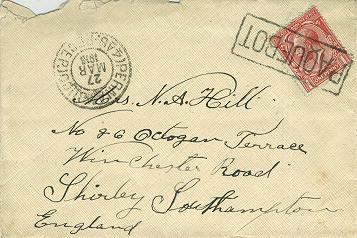 PAQUEBOT
27
MAR
Mrs. N. A. Hill
No 86 Octogan Terrace
Winchester Road
Shirley Southampton
England